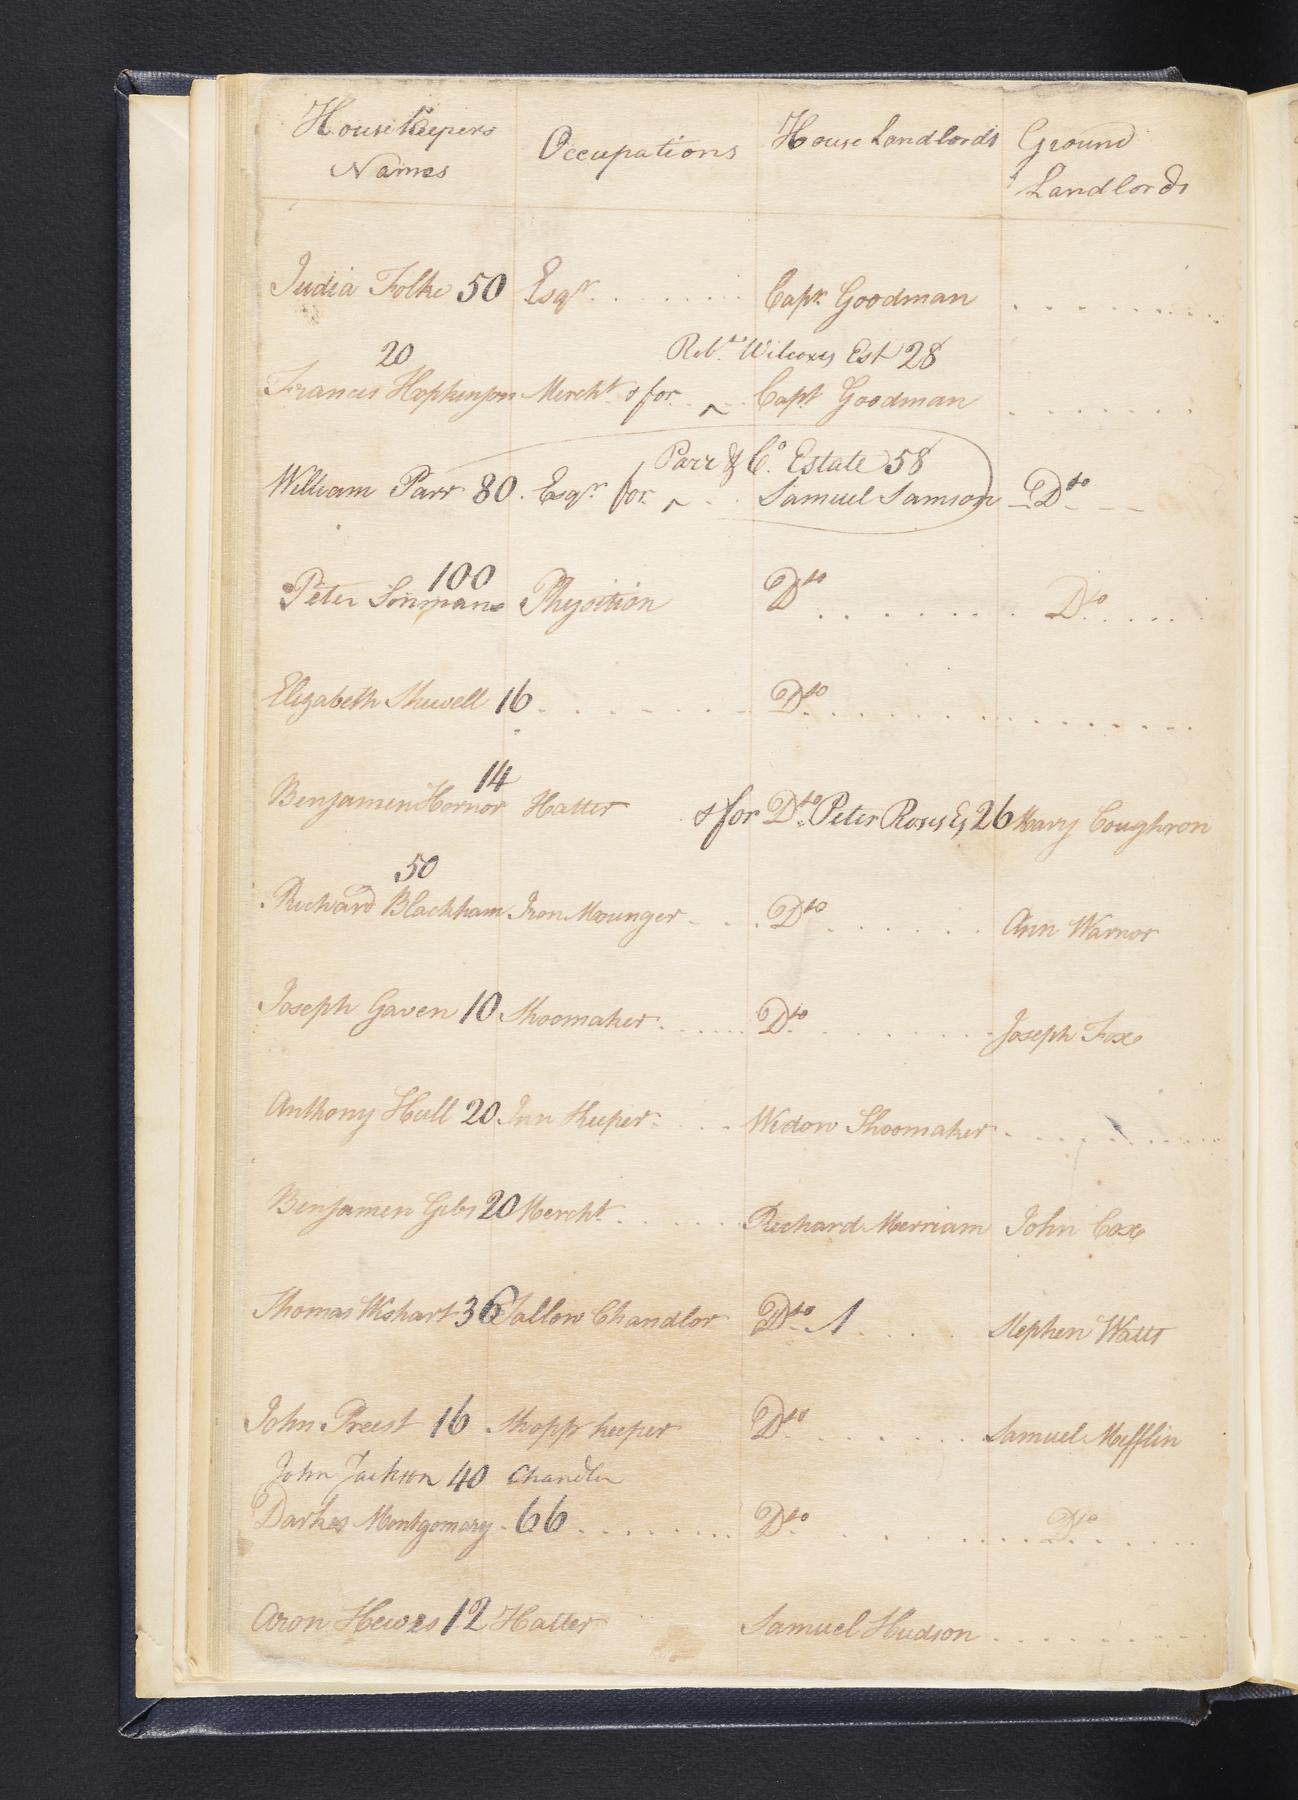 House Keepers Names Occupations House Landlords Ground Landlords
Judia Folke 50 Esqr. Capt. Goodman
Robt. Wilcoxs Est 28
20
Frances Hopkinson Mercht. & for ^ Capt Goodman
Parr & Co. Estate 58
William Parr 80. Esqr. for ^ Samuel Samson Dto
100
Peter Sonmans Physition Dto Dto
Elizabeth Shewell 16 Dto
14
Benjamen Hornor Hatter & for Dto. Peter Roses Es 26 Mary Coughron
50
Richard Blackham Iron Mounger Dto Ann Warnor
Joseph Gaven 10 Shoomaker Dto Joseph Fox
Anthony Hull 20 Inn Keeper Widow Shoomaker
Benjamen Gibs 20 Mercht. Richard Merriam John Cox
Thomas Wishart 36 Tallow Chandlor Dto Stephen Watts
John Preest 16 Shopp keeper Dto Samuel Mifflin
John Jackson 40 Chandler
Darkes Montgomary 66 Dto Dto
Aron Hewes 12 Hatter Samuel Hudson